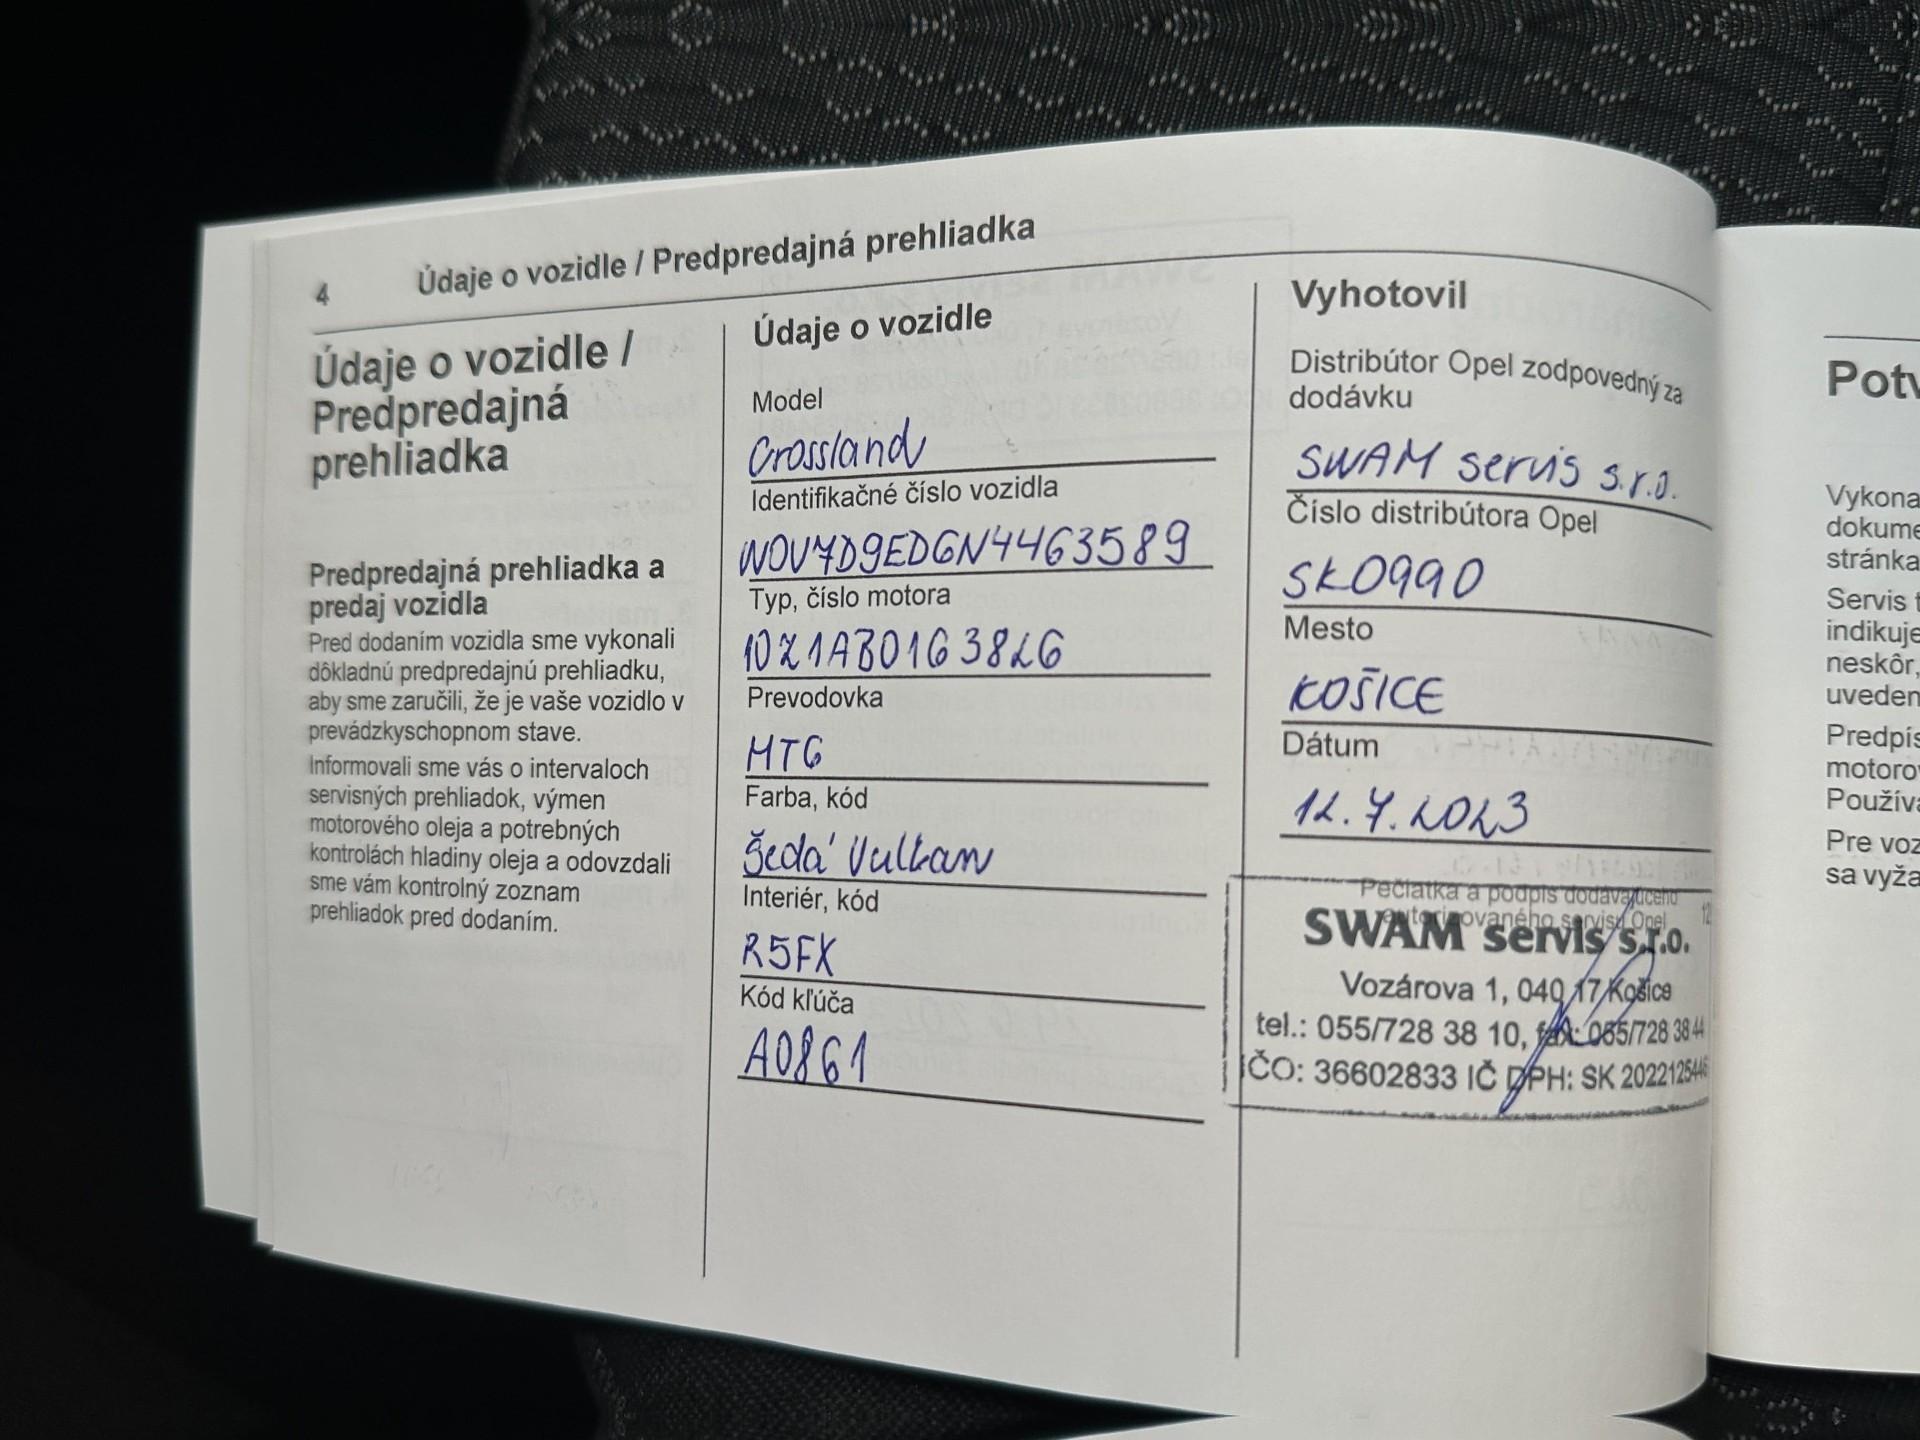 4 Údaje o vozidle / Predpredajná prehliadka
Údaje o vozidle /
Predpredajná
prehliadka
Predpredajná prehliadka a
predaj vozidla
Pred dodaním vozidla sme vykonali
dôkladnú predpredajnú prehliadku,
aby sme zaručili, že je vaše vozidlo v
prevádzkyschopnom stave.
Informovali sme vás o intervaloch
servisných prehliadok, výmen
motorového oleja a potrebných
kontrolách hladiny oleja a odovzdali
sme vám kontrolný zoznam
prehliadok pred dodaním.
Údaje o vozidle
Model
Crossland
Identifikačné číslo vozidla
W0V7D9ED6N4463589
Typ, číslo motora
10Z1AB0163826
Prevodovka
MT6
Farba, kód
Šedá Vulkan
Interiér, kód
R5FX
Kód kľúča
A0861
Vyhotovil
Distribútor Opel zodpovedný za
dodávku
SWAM servis s.r.o.
Číslo distribútora Opel
SK0990
Mesto
KOŠICE
Dátum
12.7.2023
Pečiatka a podpis dodávajúceho
autorizovaného servisu Opel
SWAM servis s.r.o.
Vozárova 1, 040 17 Košice
tel.: 055/728 38 10, fax: 055/728 38 44
IČO: 36602833 IČ DPH: SK 2022125446
12
Potv
Vykona
dokume
stránka
Servis t
indikuje
neskôr,
uveden
Predpís
motorov
Použív
Pre voz
sa vyža